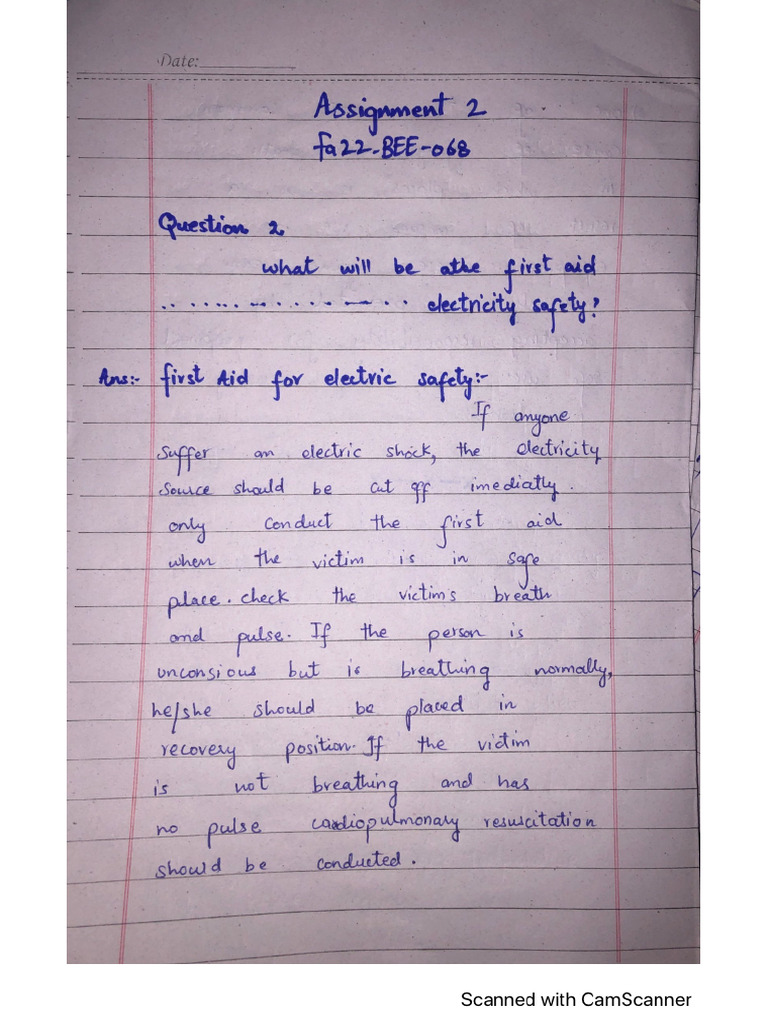 Date:
Assignment 2
fa22-BEE-068
Question 2
what will be athe first aid
.. ..... -- . . . . -- . . electricity safety?
Ans:- first Aid for electric safety:-
If anyone
Suffer an electric shock, the electricity
Source should be cut off imediatly.
only conduct the first aid
when the victim is in safe
place. check the victim's breath
and pulse. If the person is
unconsious but is breathing normally,
he/she should be placed in
recovery position. If the victim
is not breathing and has
no pulse cardiopulmonary resuscitation
should be conducted.
Scanned with CamScanner